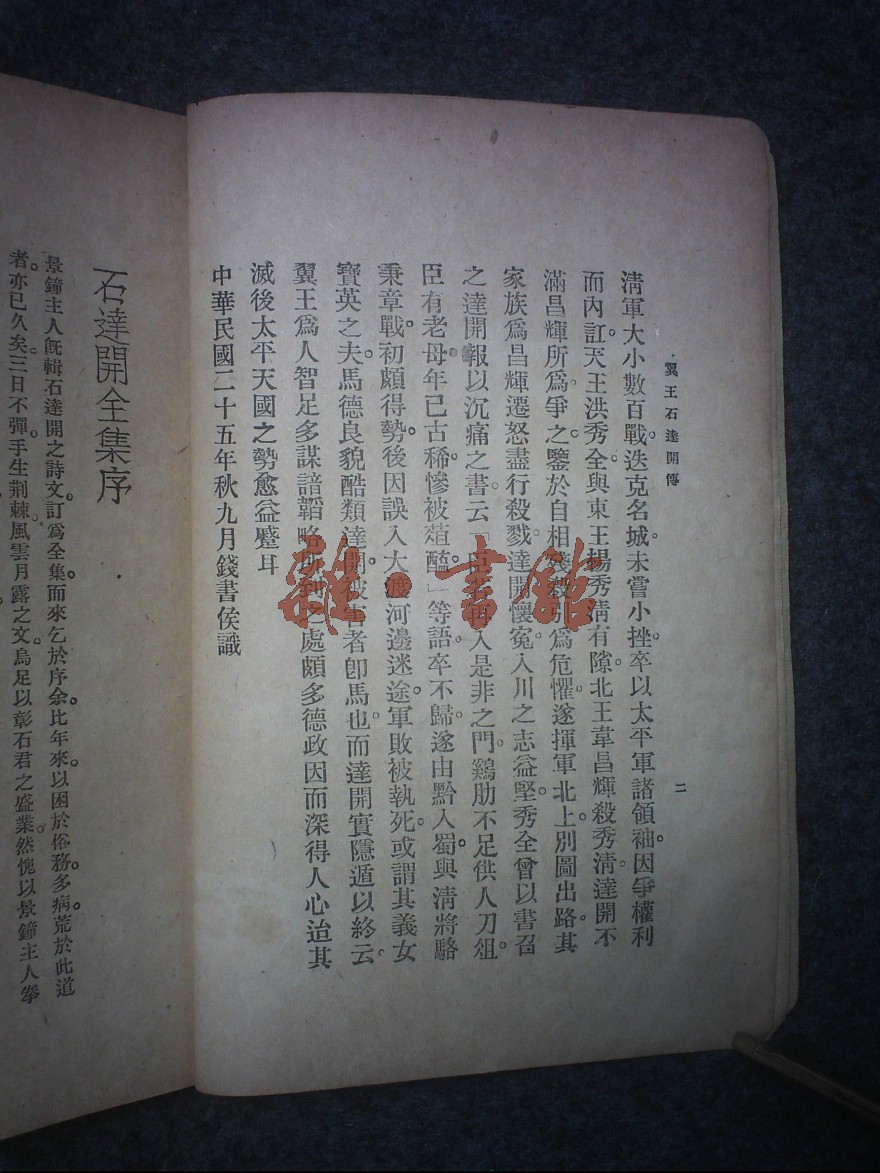 翼王石達開傳
二
清軍大小數百戰。迭克名城。未嘗小挫。卒以太平軍諸領袖。因爭權利
而內訌。天王洪秀全。與東王楊秀淸有隙。北王韋昌輝殺秀淸。達開不
滿昌輝所爲。爭之。鑒於自相殘殺。引爲危懼。遂揮軍北上。別圖出路。其
家族爲昌輝遷怒。盡行殺戮。達開懷寃。入川之志益堅。秀全曾以書召
之。達開報以沉痛之書。云 臣若再入是非之門。鷄肋不足供人刀俎。
臣有老母。年已古稀。慘被葅醢」等語。卒不歸。遂由黔入蜀。與淸將駱
秉章戰。初頗得勢。後因誤入大渡河邊迷途。軍敗被執。死。或謂其義女
寶英之夫。馬德良貌酷類達開。被害者卽馬也。而達開實隱遁以終云。
翼王爲人智足多謀諳韜略所到之處頗多德政因而深得人心迨其
滅後太平天國之勢愈益蹙耳
中華民國二十五年秋九月錢書侯識
雜·書館
石達開全集序
景鐘主人旣輯石達開之詩文。訂爲全集。而來乞於序余。比年來。以困於俗務。多病。荒於此道
者。亦已久矣。三日不彈。手生荆棘。風雲月露之文。烏足以彰石君之盛業。然愧以景鐘主人拳